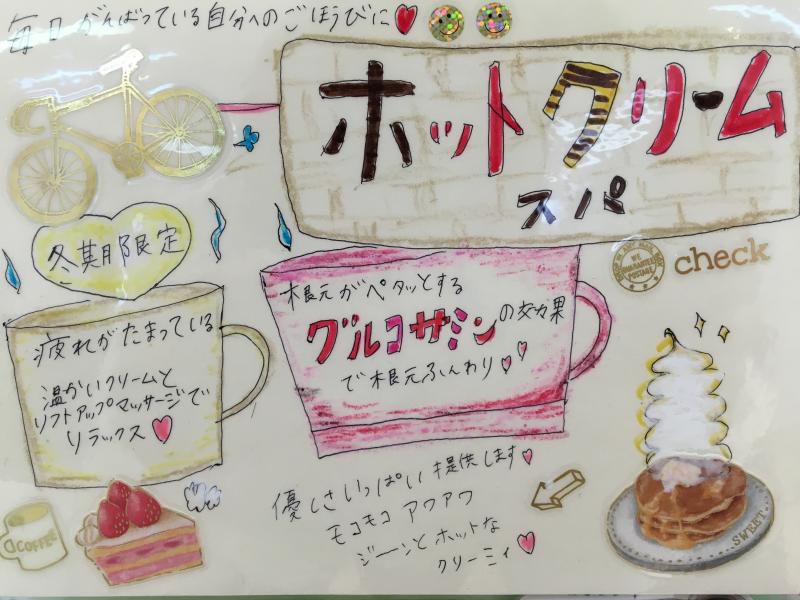 毎日がんばっている自分へのごほうびに
ホットクリーム
スパ
冬期限定
check
根元がペタッとする
グルコサミンの効果
で根元ふんわり
疲れがたまっている
温かいクリームと
リフトアップマッサージで
リラックス
優しさいっぱい提供します
モコモコ アワアワ
ジーンとホットな
クリーミィ
COFFEE
SWEET